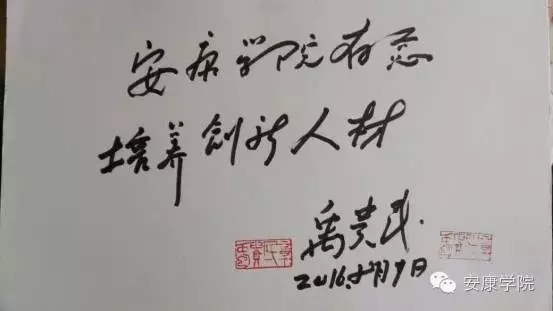 安康学院有志
培养创新人材
2016 月9日
安康学院